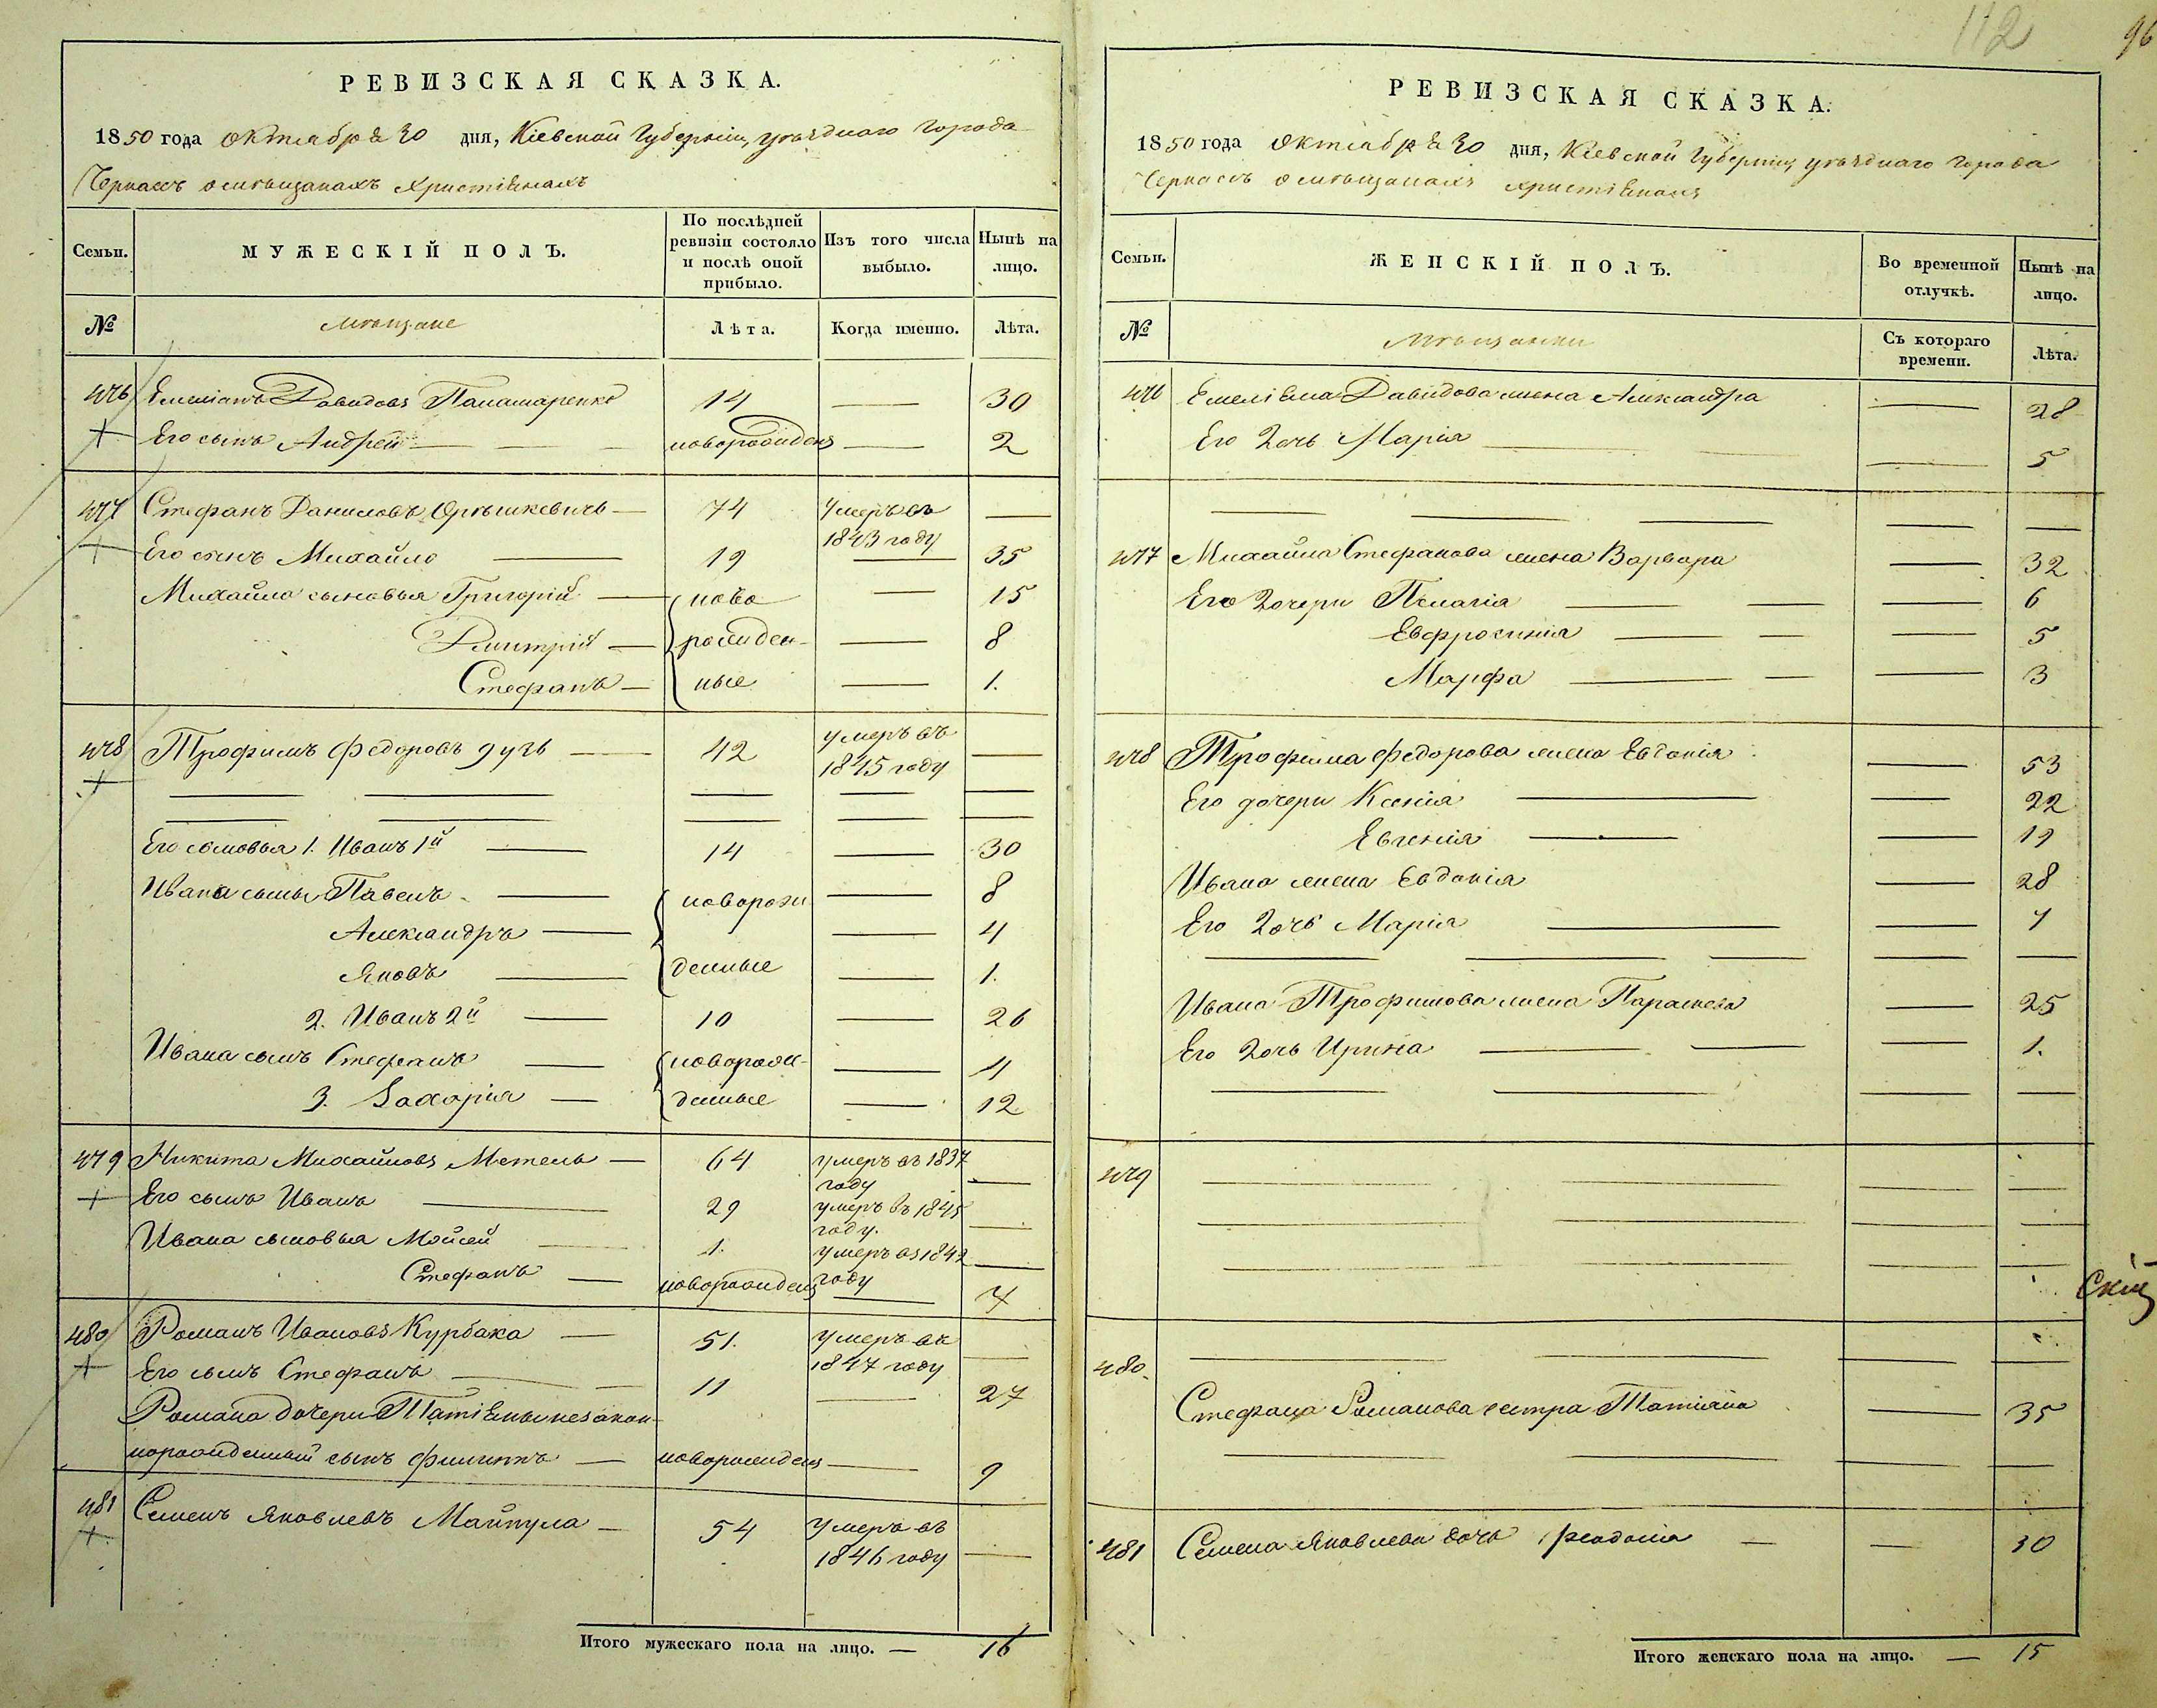 112
96
РЕВИЗСКАЯ СКАЗКА.
1850 года октября 30 дня, Кіевской Губерніи, уѣзднаго города
Черкасъ о мѣщанахъ христіянахъ
Семьи.
МУЖЕСКІЙ ПОЛЪ.
По послѣдней ревизіи состояло и послѣ оной прибыло.
Изъ того числа выбыло.
Нынѣ на лицо.
№
мѣщане
Лѣта.
Когда именно.
Лѣта.
476 Емеліанъ Давидовъ Паламаренко 14 — 30
Его сынъ Андрей — новорожденъ — 2
477 Стефанъ Даниловъ Орѣшкевичъ — 74 Умеръ въ 1843 году —
Его сынъ Михайло — 19 — 35
Михайла сыновья Григорій — ново — 15
Дмитрій — рожден- — 8
Стефанъ — ные — 1.
478 Трофимъ Федоровъ — 42 умеръ въ 1845 году —
Его сыновья 1. Иванъ 1й — 14 — 30
Ивана сыны Павелъ — оворож — 8
Александръ — — 4
Яковъ — денные — 1.
2. Иванъ 2й — 10 — 26
Ивана сынъ Стефанъ — новорож- — 4
3. Захарія — денные — 12
479 Никита Михайловъ Метель — 64 умеръ въ 1837 году —
Его сынъ Иванъ — 29 умеръ въ 1845 году. —
Ивана сыновья Мойсей — 1. умеръ въ 1842 году —
Стефанъ — новорожденъ — 7
480 Романъ Ивановъ Курбака — 51. умеръ въ 1847 году —
Его сынъ Стефанъ — 11 — 27
Романа дочери Татіяны незакон-
норожденный сынъ Филиппъ — новорожденъ — 9
481 Семенъ Яковлевъ Майпула — 54 Умеръ въ 1846 году —
Итого мужескаго пола на лицо. — 16
РЕВИЗСКАЯ СКАЗКА.
1850 года октября 30 дня, Кіевской Губерніи, уѣзднаго города
Черкасъ о мѣщанахъ христіянахъ
Семьи.
ЖЕНСКІЙ ПОЛЪ.
Во временной отлучкѣ.
Нынѣ на лицо.
№
мѣщанки
Съ котораго времени.
Лѣта.
476 Емеліяна Давидова жена Александра — 28
Его дочь Марія — 5
477 Михайла Стефанова жена Варвара — 32
Его дочери Пелагія — 6
Евфросинія — 5
Марфа — 3
478 Трофима Федорова жена Евдокія — 53
Его дочери Ксенія — 22
Евгенія — 19
Ивана жена Евдокія — 28
Его дочь Марія — 7
Ивана Трофимова жена Параскева — 25
Его дочь Ирина — 1.
479
480.
Стефана Романова сестра Татіяна — 35
481 Семена Яковлева дочь Феодосія — 30
Итого женскаго пола на лицо. — 15